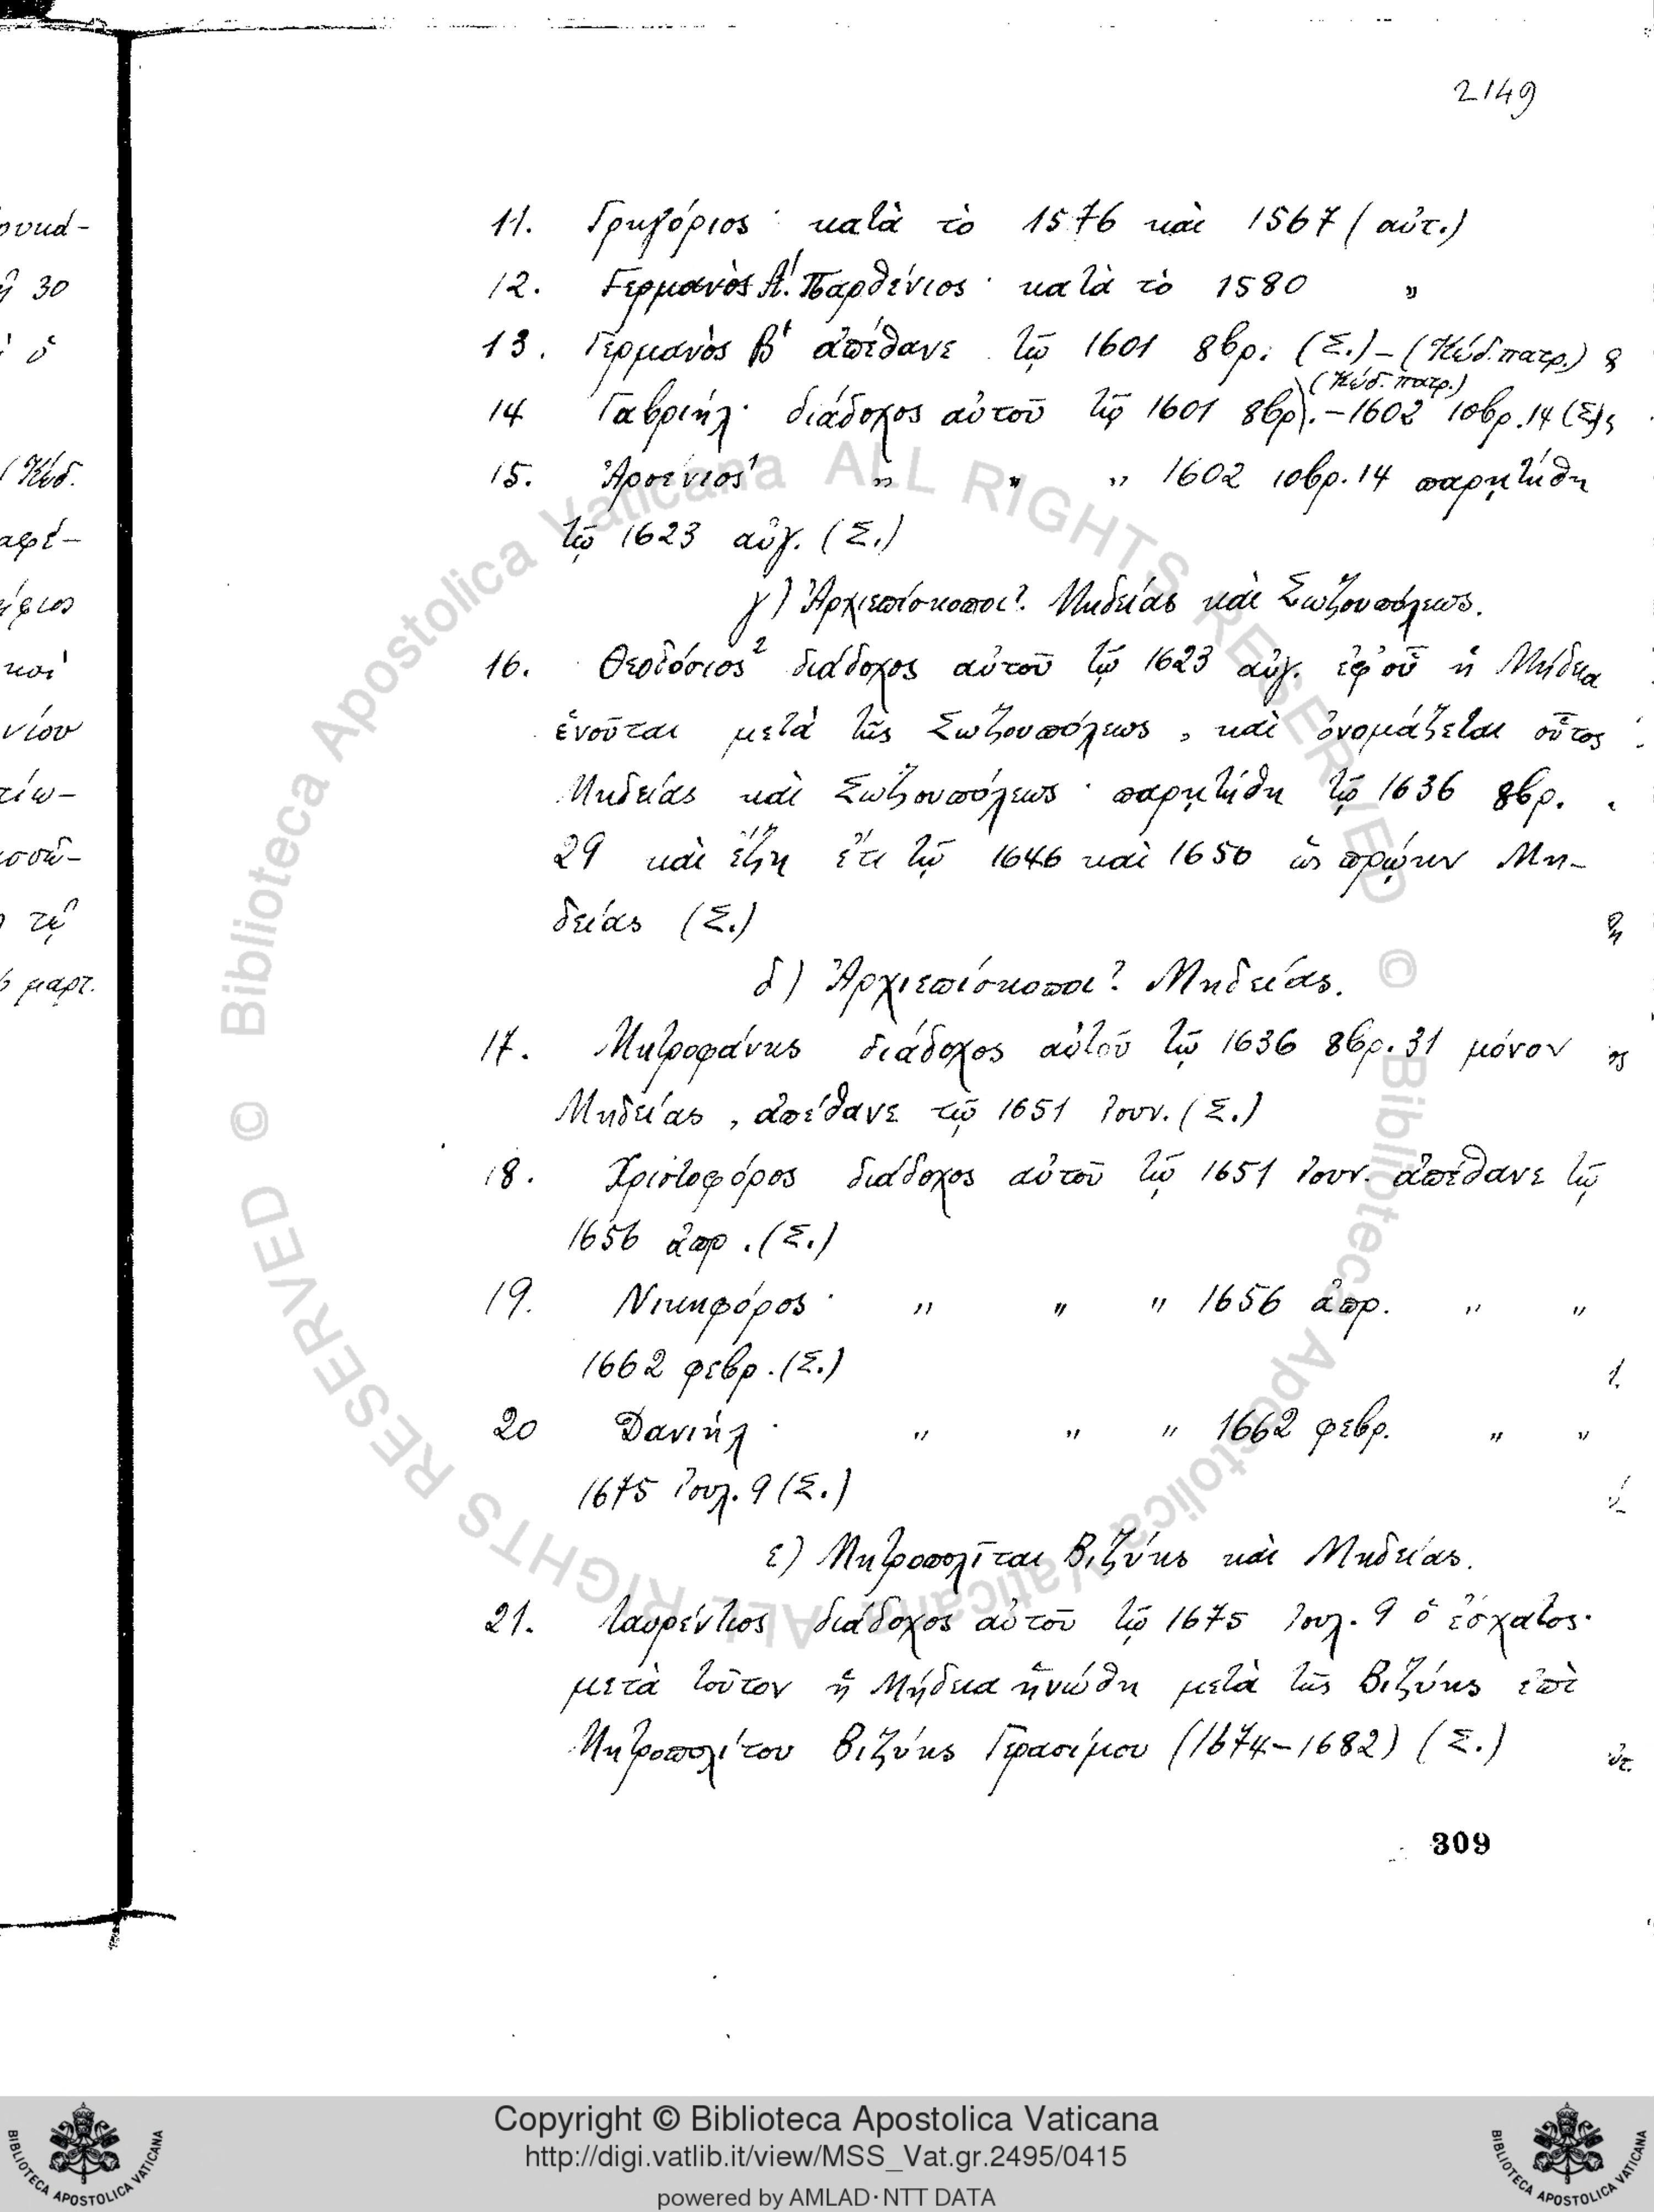 2149
11. Γρηγόριος· κατὰ τὸ 1576 καὶ 1567 (αὐτ.)
12. Γερμανὸς Α'. Παρθένιος· κατὰ τὸ 1580 "
13. Γερμανὸς Β' ἀπέθανε τῷ 1601 8βρ. (Σ.) – (Κώδ. πατρ.)
(Κώδ. πατρ.)
14 Γαβριήλ· διάδοχος αὐτοῦ τῷ 1601 8βρ). – 1602 10βρ. 14 (Σ)
15. Ἀρσένιος¹ " " " 1602 10βρ. 14 παρῃτήθη
τῷ 1623 αὐγ. (Σ.)
γ) Ἀρχιεπίσκοποι?. Μηδείας καὶ Σωζουπόλεως.
16. Θεοδόσιος² διάδοχος αὐτοῦ τῷ 1623 αὐγ. ἐφ' οὗ ἡ Μήδεια
ἑνοῦται μετὰ τῆς Σωζουπόλεως, καὶ ὀνομάζεται οὗτος
Μηδείας καὶ Σωζουπόλεως· παρῃτήθη τῷ 1636 8βρ.
29 καὶ ἔζη ἔτι τῷ 1646 καὶ 1650 ὡς πρῴην Μη-
δείας (Σ.)
δ) Ἀρχιεπίσκοποι? Μηδείας.
17. Μητροφάνης διάδοχος αὐτοῦ τῷ 1636 8βρ. 31 μόνον
Μηδείας, ἀπέθανε τῷ 1651 Ἰουν. (Σ.)
18. Χριστοφόρος διάδοχος αὐτοῦ τῷ 1651 Ἰουν. ἀπέθανε τῷ
1656 ἀπρ. (Σ.)
19. Νικηφόρος· " " " 1656 ἀπρ. " "
1662 φεβρ. (Σ.)
20 Δανιήλ· " " " 1662 φεβρ. " "
1675 Ἰουλ. 9 (Σ.)
ε) Μητροπολῖται Βιζύης καὶ Μηδείας.
21. Λαυρέντιος διάδοχος αὐτοῦ τῷ 1675 Ἰουλ. 9 ὁ ἔσχατος·
μετὰ τοῦτον ἡ Μήδεια ἡνώθη μετὰ τῆς Βιζύης ἐπὶ
Μητροπολίτου Βιζύης Γερασίμου (1674–1682) (Σ.)
309
30
(Κώδ.
αφέ-
καὶ
νίου
μαρτ.
© Biblioteca Apostolica Vaticana ALL RIGHTS RESERVED © Biblioteca Apostolica Vaticana ALL RIGHTS RESERVED
Copyright © Biblioteca Apostolica Vaticana
http://digi.vatlib.it/view/MSS_Vat.gr.2495/0415
powered by AMLAD·NTT DATA
BIBLIOTECA APOSTOLICA VATICANA
BIBLIOTECA APOSTOLICA VATICANA